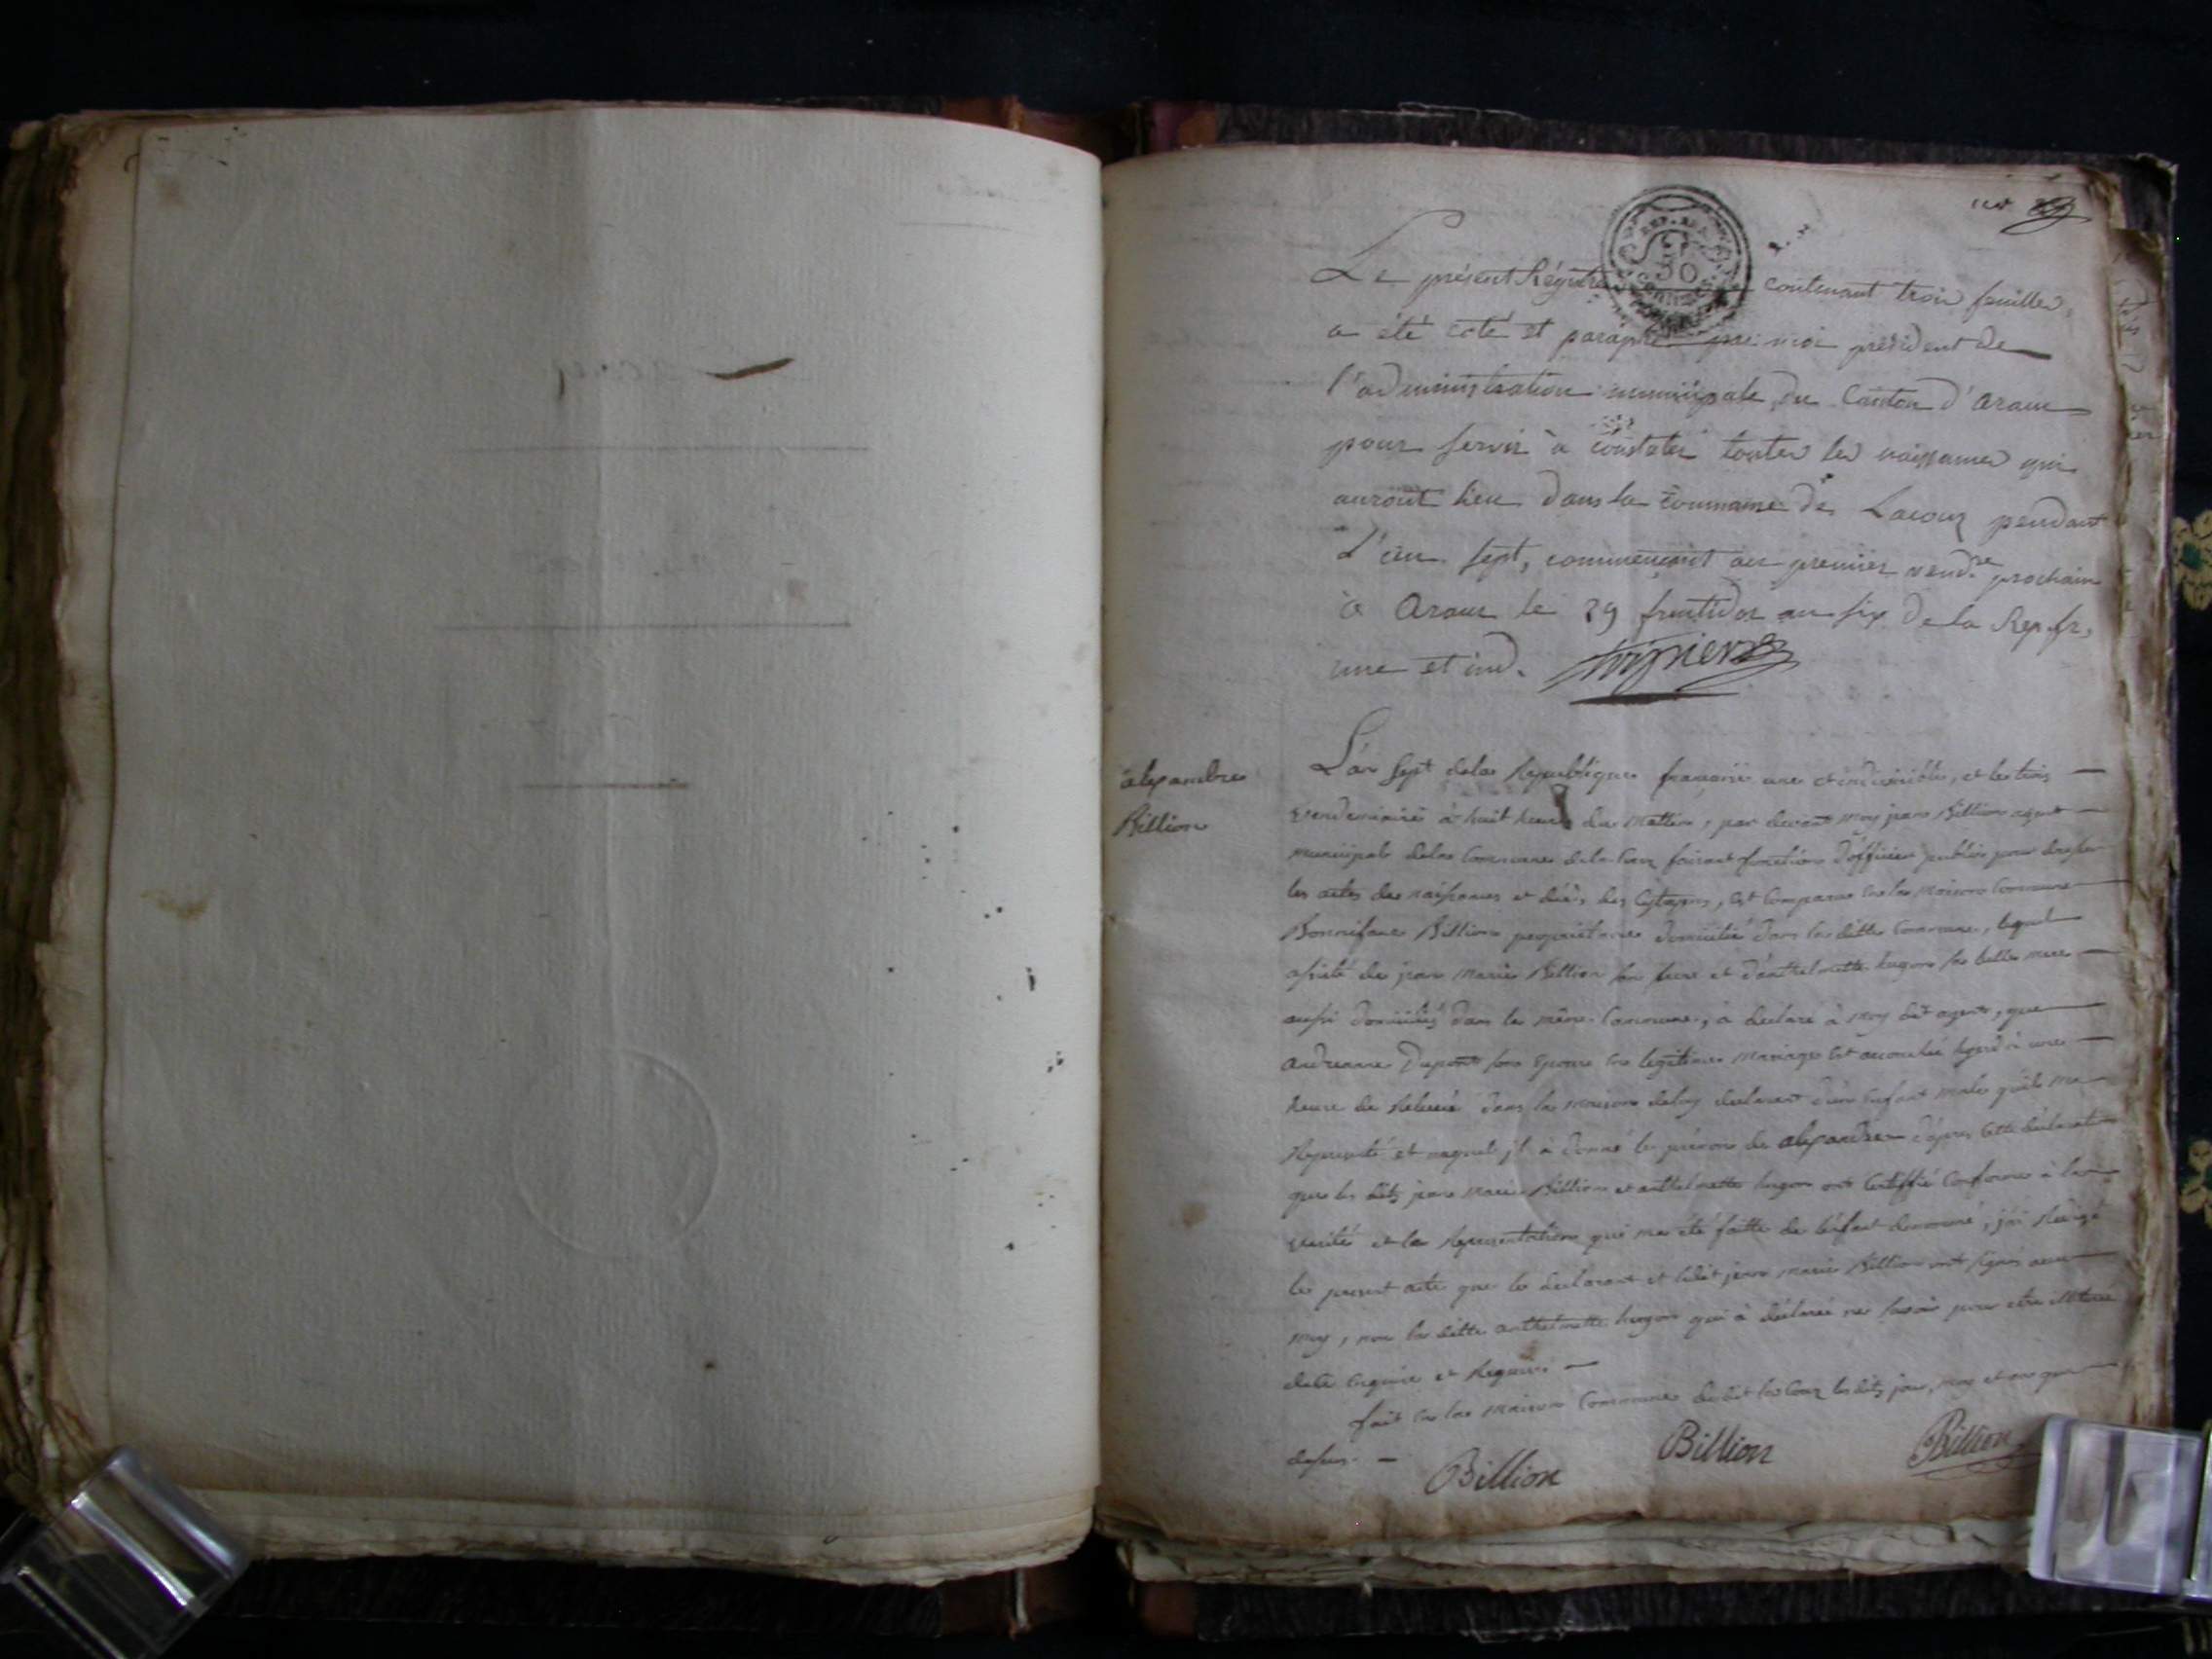 Le présent Régistre contenant trois feuilles,
a été coté et paraphé par moi président de
l'administration municipale du Canton d'aranc
pour servir à constater toutes les naissances qui
auront lieu dans la commune de Lacoux pendant
l'an sept, commençant au premier vend.re prochain
à Aranc le 29 fructidor an six de la Rep. fr,
une et ind.
50
Centimes
alexandre
Billion
L'an sept dela Republique francoise une et indivisible, et le trois
vendemiaire à huit heures du mattin, par devant moy jean Billion agent
municipale dela Commune dela Coux faisant fonctions d'officier public pour dresser
les actes de naissances et décès des Citoyens, est Comparu en la maison Commune
Bonniface Billion proprietaire domicilié dans la ditte Commune, lequel
assisté de jean marie Billion son frere et d'anthelmette hugon sa belle mere
aussi domiciliés dans la même Commune, à declaré à moy dit agent, que
andreanne Dupont son Epouse en legitime mariage est accouchée hyerd à une
heure de Relevée dans la maison deluy declarant d'un Enfant male qu'il ma
Representé et auquel jl à donné le prénom de alexandre d'apres Cette déclaration
que les dits jean marie Billion et anthelmette hugon ont Certiffié Conforme à la
verité et la Representation qui ma été faitte de l'enfant denommé, j'ai Redigé
le present acte que le declarant et ledit jean marie Billion ont signés avec
moy, non la ditte anthelmette hugon qui à déclarée ne savoir pour etre illiteree
dece Enquise et Requise.
fait en la maison Commune dudit la Coux les dits jour, mois et an que
dessus.
Billion
Billion
Billion